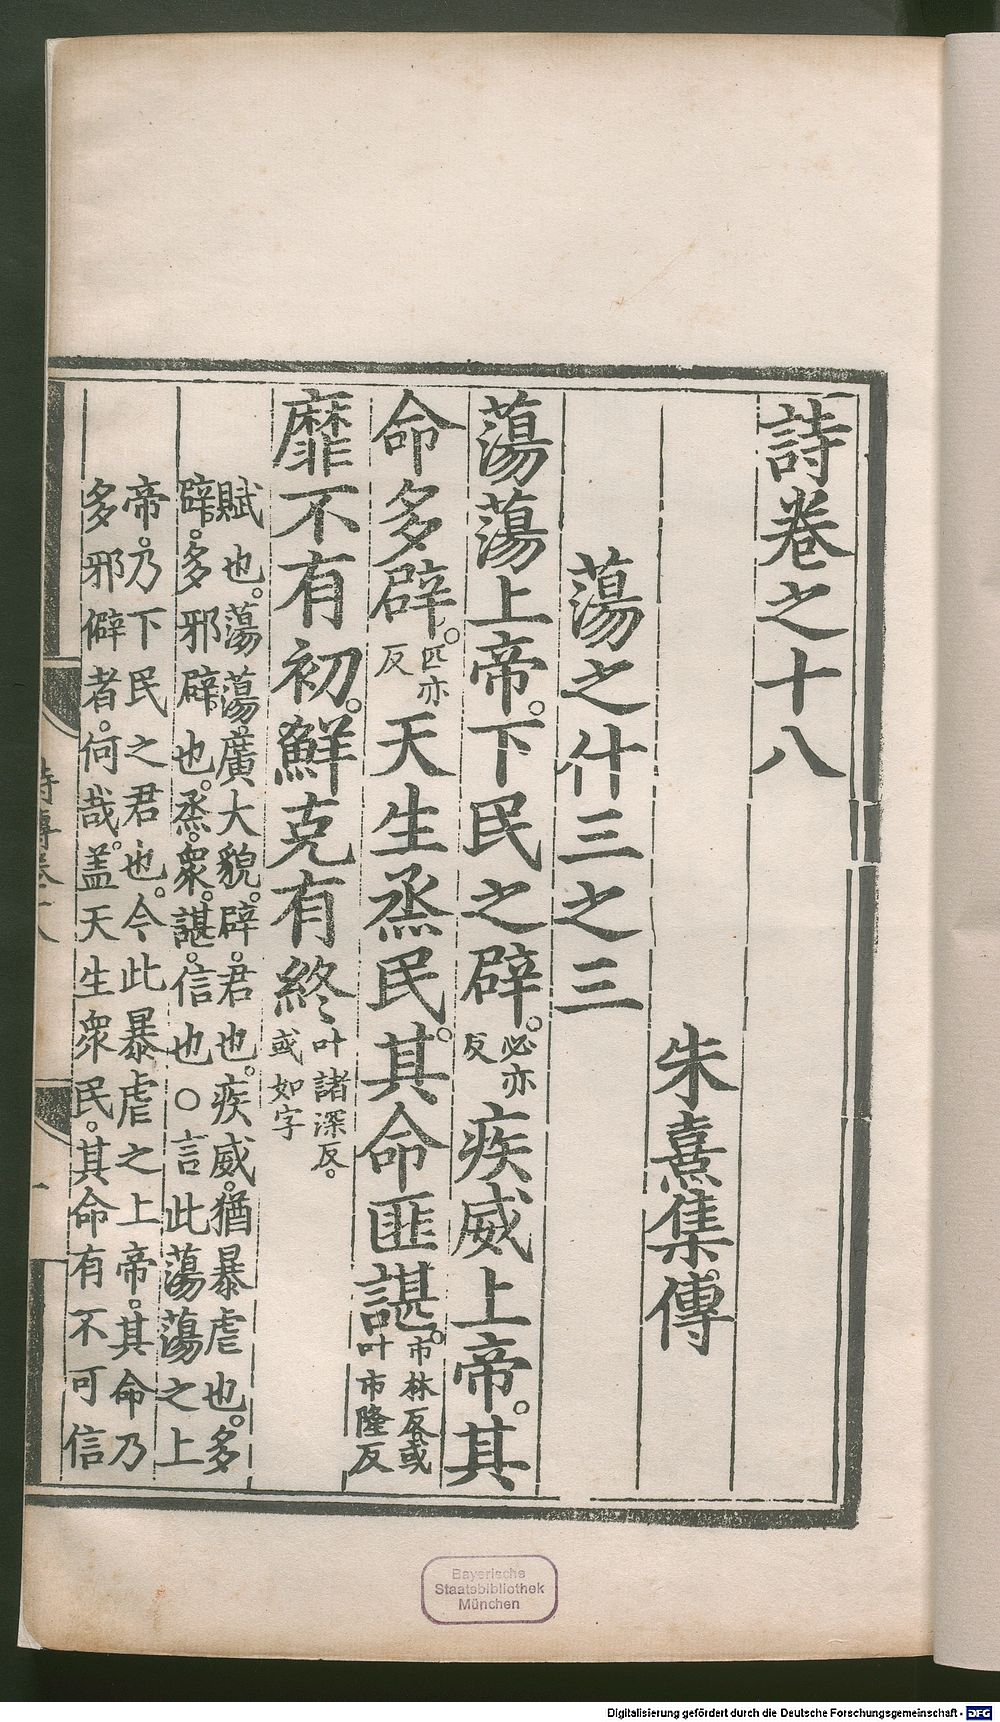 詩卷之十八
朱熹集傳
蕩之什三之三
蕩蕩上帝。下民之辟。必亦反疾威上帝。其
命多辟。匹亦反天生烝民。其命匪諶。市林反。或叶市隆反
靡不有初。鮮克有終叶諸深反。或如字
賦也。蕩蕩。廣大貌。辟。君也。疾威。猶暴虐也。多
辟。多邪辟也。烝。衆。諶。信也○言此蕩蕩之上
帝。乃下民之君也。今此暴虐之上帝。其命乃
多邪僻者。何哉。盖天生衆民。其命有不可信
Bayerische
Staatsbibliothek
München
Digitalisierung gefördert durch die Deutsche Forschungsgemeinschaft - DFG